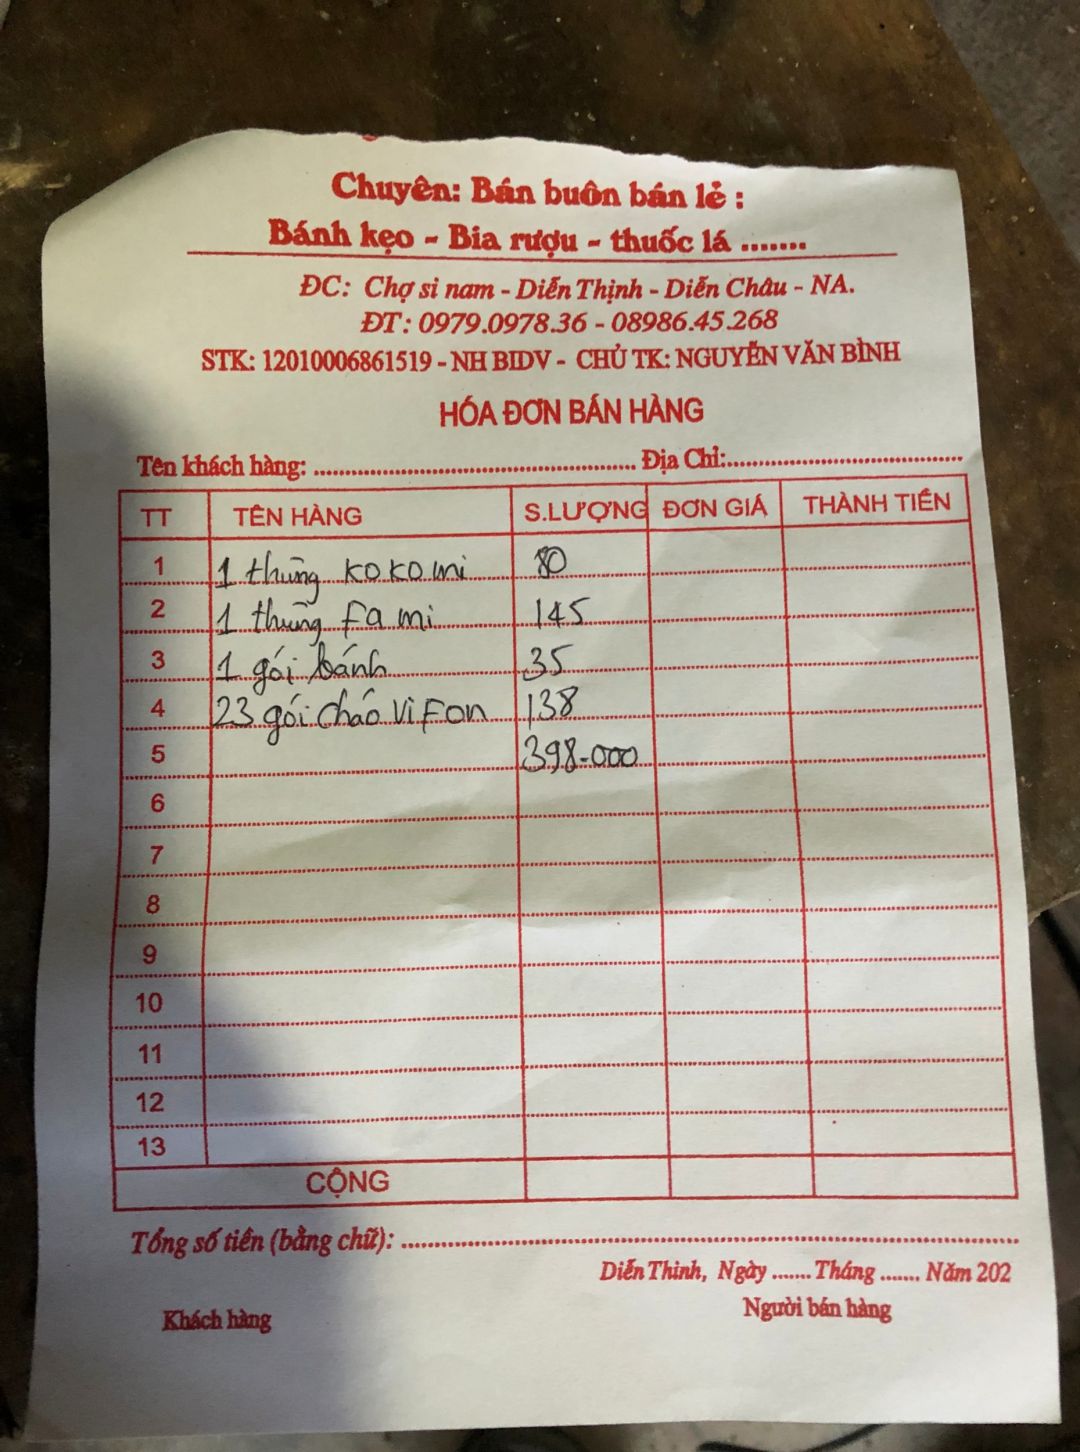 Chuyên: Bán buôn bán lẻ :
Bánh kẹo - Bia rượu - thuốc lá .......
ĐC: Chợ si nam - Diễn Thịnh - Diễn Châu - NA.
ĐT: 0979.0978.36 - 08986.45.268
STK: 12010006861519 - NH BIDV - CHỦ TK: NGUYỄN VĂN BÌNH
HÓA ĐƠN BÁN HÀNG
Tên khách hàng: ................................................ Địa Chỉ:...................................
TT TÊN HÀNG S.LƯỢNG ĐƠN GIÁ THÀNH TIỀN
1 1 thùng KOKOmi 80
2 1 thùng Fami 145
3 1 gói bánh 35
4 23 gói cháo ViFon 138
5 398.000
6
7
8
9
10
11
12
13
CỘNG
Tổng số tiền (bằng chữ): ................................................................
Diễn Thinh, Ngày ....... Tháng ....... Năm 202
Khách hàng Người bán hàng